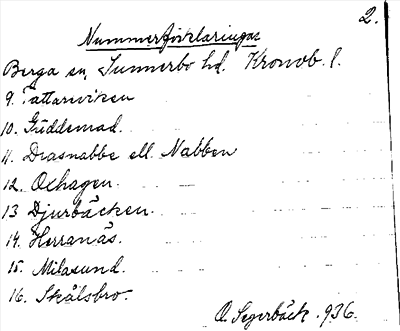 2.
Nummerförklaringar
Berga sn, Sunnerbo hd. Kronob. l.
9. Tattarviken
10. Guddemad.
11. Drasnabbe ell. Nabben
12. Oxhagen.
13 Djurbäcken.
14. Herranäs.
15. Milasund.
16. Skålsbro.
O. Segerbäck. 936.